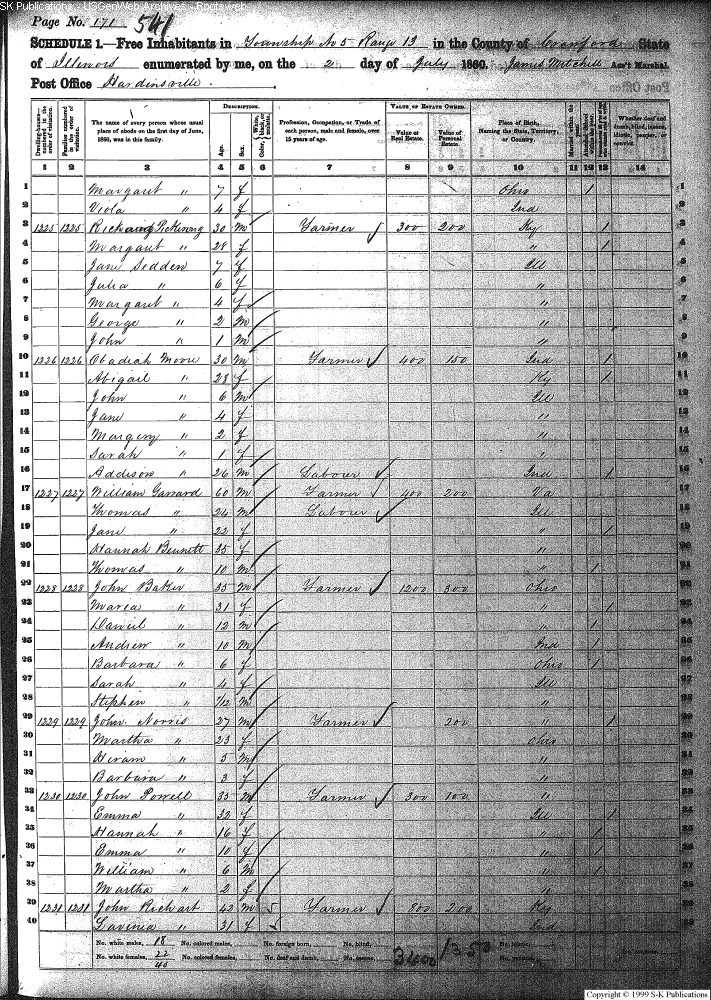 SK Publications - USGenWeb Archives - Rootsweb
Page No. 171 541
SCHEDULE 1.—Free Inhabitants in Township No 5 Range 13 in the County of Crawford State
of Illinois enumerated by me, on the 2 day of July 1860. James Mitchell Ass't Marshal.
Post Office Hardinsville.
DESCRIPTION. VALUE OF ESTATE OWNED.
Dwelling-houses—numbered in the order of visitation. Families numbered in the order of visitation. The name of every person whose usual place of abode on the first day of June, 1860, was in this family. Age. Sex. Color, White, black, or mulatto. Profession, Occupation, or Trade of each person, male and female, over 15 years of age. Value of Real Estate. Value of Personal Estate. Place of Birth, Naming the State, Territory, or Country. Married within the year. Attended School within the year. Whether deaf and dumb, blind, insane, idiotic, pauper, or convict.
1 2 3 4 5 6 7 8 9 10 11 12 13 14
1 Margaret " 7 f Ohio / 1
2 Viola " 4 f Ind 2
3 1225 1225 Pickering 30 m Farmer 300 200 Ky / 3
4 Margaret " 28 f " / 4
5 Jane Sedden 7 f Ill 5
6 Julia " 6 f " 6
7 Margaret " 4 f " 7
8 George " 2 m " 8
9 John " 1 m " 9
10 1226 1226 Obadiah Moore 30 m Farmer 400 150 Ind / 10
11 Abigail " 28 f Ky / 11
12 John " 6 m Ill 12
13 Jane " 4 f " 13
14 Margery " 2 f " 14
15 Sarah " 1 f " 15
16 Addison " 26 m Laborer Ind / 16
17 1227 1227 William Garrard 60 m Farmer 400 200 Va 17
18 Thomas " 24 m Laborer Ill 18
19 Jane " 22 f " / 19
20 Hannah Bennett 35 f " 20
21 Thomas " 10 m " / 21
22 1228 1228 John Baker 35 m Farmer 1200 300 Ohio 22
23 Maria " 31 f " / 23
24 Daniel " 12 m " / 24
25 Andrew " 10 m Ind / 25
26 Barbara " 6 f Ohio / 26
27 Sarah " 4 f Ill 27
28 Stephen " 7/12 m " 28
29 1229 1229 John Norris 27 m Farmer 200 " / 29
30 Martha " 23 f Ohio 30
31 Hiram " 5 m " 31
32 Barbara " 3 f " 32
33 1230 1230 John Powell 35 m Farmer 300 100 " 33
34 Emma " 32 f Ill / 34
35 Hannah " 16 f " / 35
36 Emma " 10 f " / 36
37 William " 6 m " / 37
38 Martha " 2 f " 38
39 1231 1231 John Richart 42 m 5 Farmer 800 200 Ky 39
40 Lavinia " 31 f Ind 40
No. white males, 18 No. colored males, No. foreign born, No. blind,
No. white females, 22 No. colored females, No. deaf and dumb, No. insane, 3400 1350
40
Copyright © 1999 S-K Publications